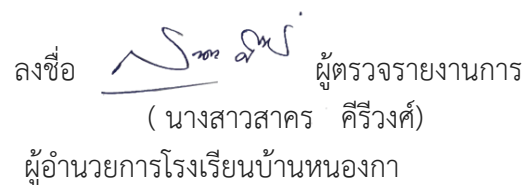 ลงชื่อ ผู้ตรวจรายงานการ
( นางสาวสาคร คีรีวงศ์)
ผู้อำนวยการโรงเรียนบ้านหนองกา